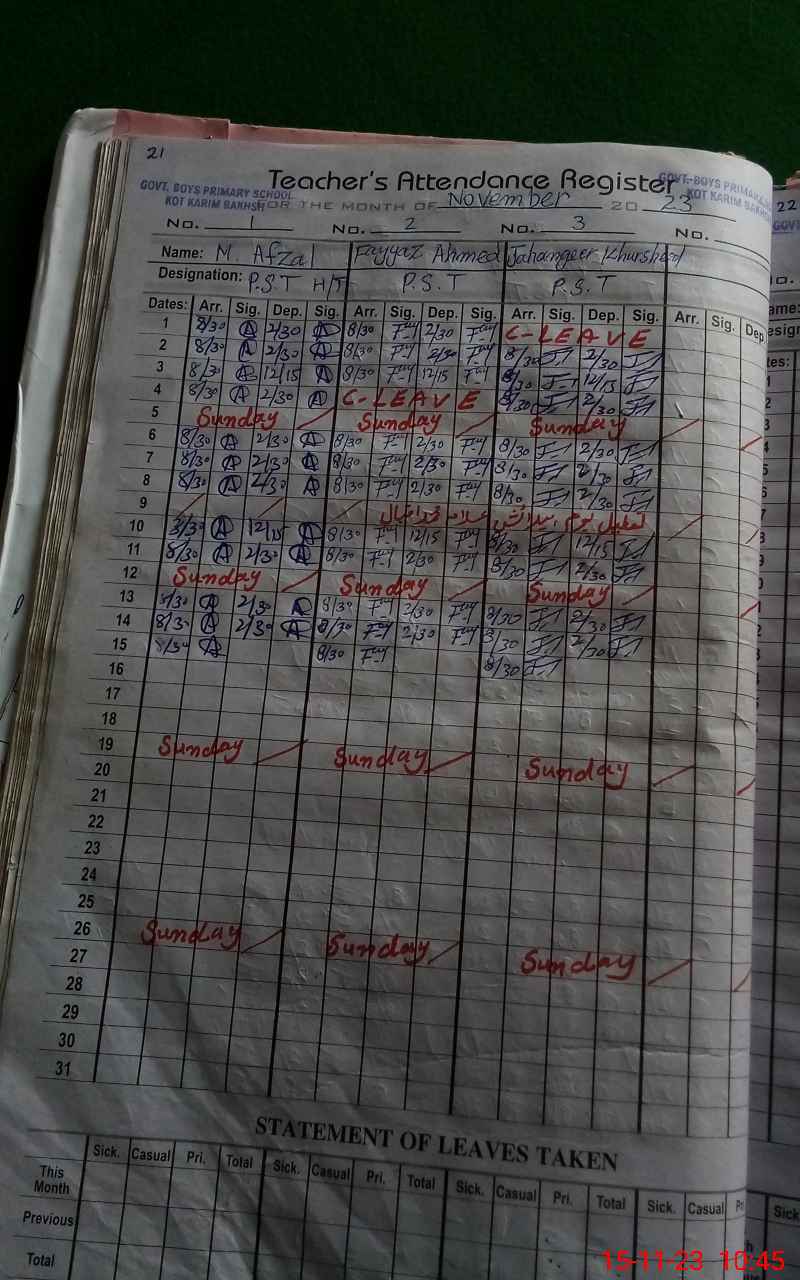 21
Teacher's Attendance Register
GOVT. BOYS PRIMARY SCHOOL
KOT KARIM BAKHSH
FOR THE MONTH OF November 20 23
GOVT. BOYS PRIMA
KOT KARIM BAKHSH
22
No. 1 No. 2 No. 3 No.
Name: M. Afzal Fayyaz Ahmed Jahangeer Khursheed
Designation: P.S.T H/T P.S.T P.S.T
Dates: Arr. Sig. Dep. Sig. Arr. Sig. Dep. Sig. Arr. Sig. Dep. Sig. Arr. Sig. Dep.
1 8/30 A 2/30 A 8/30 2/30 C-LEAVE
2 8/30 A 2/30 A 8/30 2/30 8/30 2/30
3 8/30 A 12/15 A 8/30 12/15 8/30 12/15
4 8/30 A 2/30 A C-LEAVE 8/30 2/30
5 Sunday Sunday Sunday
6 8/30 A 2/30 A 8/30 2/30 8/30 2/30
7 8/30 A 2/30 A 8/30 2/30 8/30 2/30
8 8/30 A 2/30 A 8/30 2/30 8/30 2/30
9 تعطیل یوم پیدائش علامہ محمد اقبال
10 8/30 A 12/15 A 8/30 12/15 8/30 12/15
11 8/30 A 2/30 A 8/30 2/30 8/30 2/30
12 Sunday Sunday Sunday
13 8/30 A 2/30 A 8/30 2/30 8/30 2/30
14 8/30 A 2/30 A 8/30 2/30 8/30 2/30
15 8/30 A 8/30 8/30
16
17
18
19 Sunday Sunday Sunday
20
21
22
23
24
25
26 Sunday Sunday Sunday
27
28
29
30
31
STATEMENT OF LEAVES TAKEN
Sick. Casual Pri. Total Sick. Casual Pri. Total Sick. Casual Pri. Total Sick. Casual Pri
This Month
Previous
Total
15-11-23 10:45